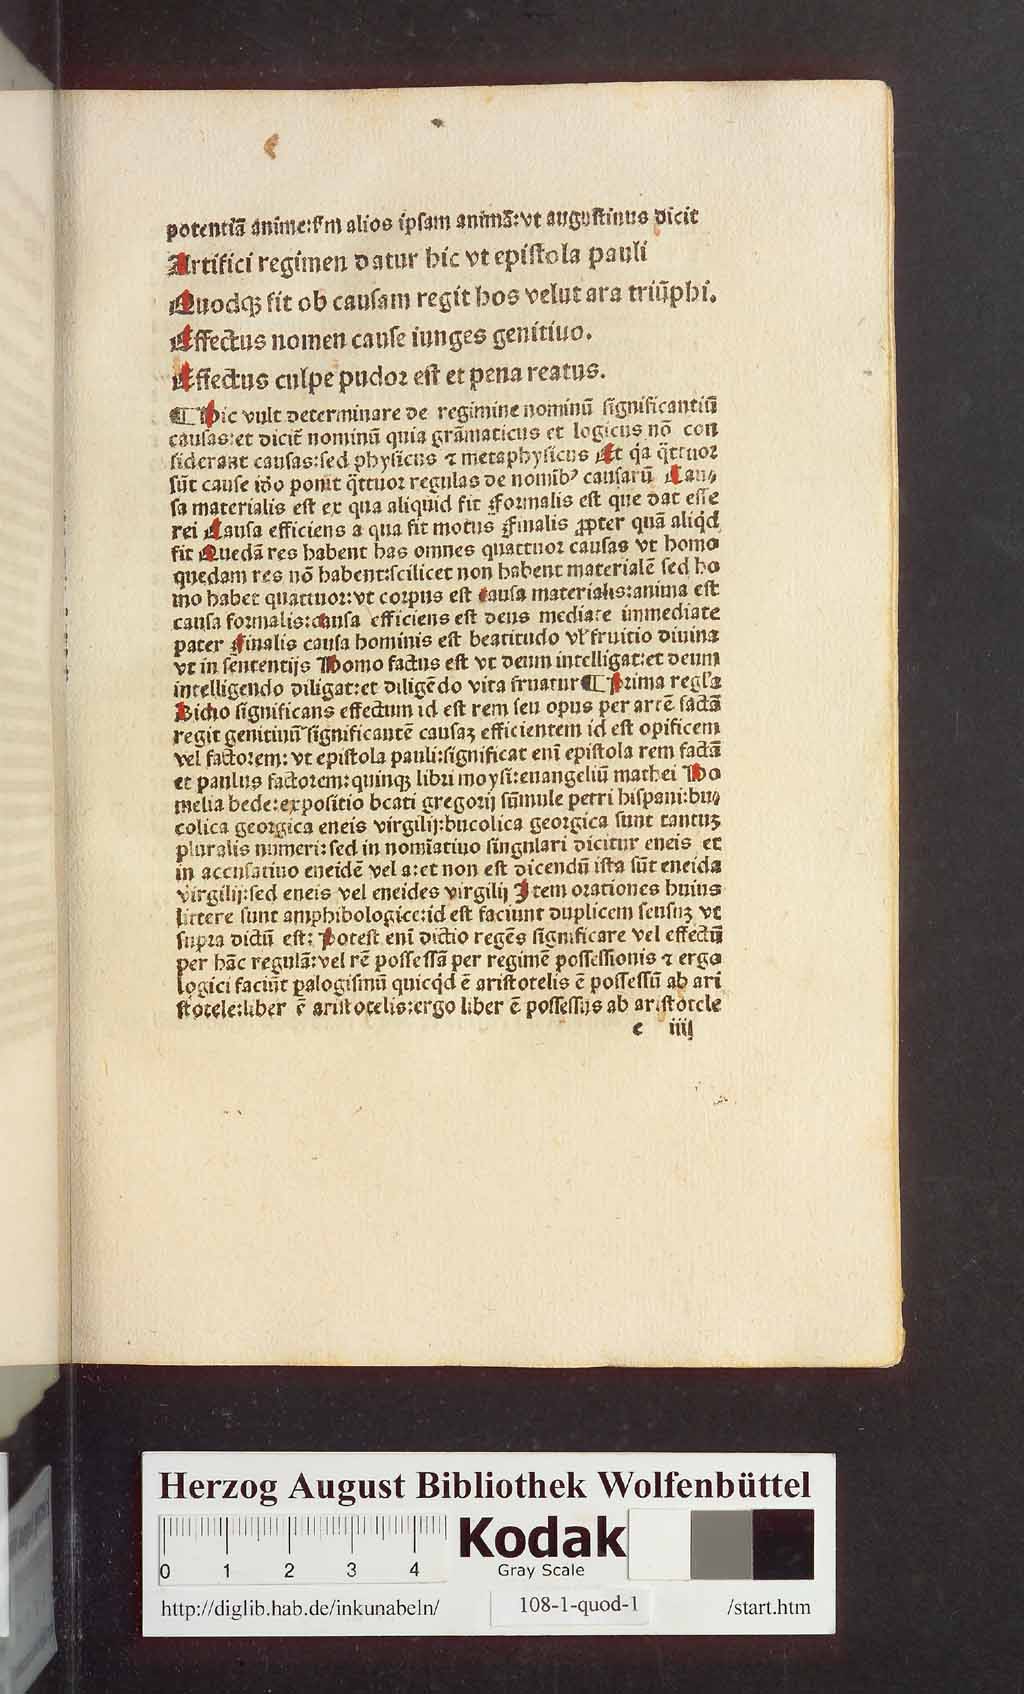 potentiā anime:ſm alios ipſam animā:vt auguſtinus dicit
Artifici regimen datur hic vt epiſtola pauli
Quodqꝫ ſit ob cauſam regit hos velut ara triūphi.
Effectus nomen cauſe iunges genitiuo.
Effectus culpe pudoꝛ eſt et pena reatus.
¶ Hic vult determinare de regimine nominū ſignificantiū
cauſas:et dicit̄ nominū quia grāmaticus et logicus nō con
ſiderant cauſas:ſed phyſicus ⁊ metaphyſicus Et q̇a q̄ttuoꝛ
ſūt cauſe iđo ponit q̄ttuoꝛ regulas de nomibꝰ cauſarū Cau⸗
ſa materialis eſt ex qua aliquid fit Foꝛmalis eſt que dat eſſe
rei Cauſa efficiens a qua fit motus Finalis ꝓpter quā aliq̇d
fit Quedā res habent has omnes quattuoꝛ cauſas vt homo
quedam res nō habent:ſcilicet non habent materialē ſed ho
mo habet quattuoꝛ:vt coꝛpus eſt cauſa materialis:anima eſt
cauſa foꝛmalis:cauſa efficiens eſt deus mediate immediate
pater Finalis cauſa hominis eſt beatitudo vl̓ fruitio diuina
vt in ſententijs Homo factus eſt vt deum intelligat:et deum
intelligendo diligat:et diligēdo vita fruatur ¶ Pꝛima regl̓a
Dictio ſignificans effectum id eſt rem ſeu opus per artē factā
regit genitiuū ſignificantē cauſaꝫ efficientem id eſt opificem
vel factoꝛem: vt epiſtola pauli:ſignificat enī epiſtola rem factā
et paulus factoꝛem:quinqꝫ libꝛi moyſi:euangeliū mathei Ho
melia bede:expoſitio beati gregoꝛij ſūmule petri hiſpani:bu⸗
colica geoꝛgica eneis virgilij:bucolica geoꝛgica ſunt tantuꝫ
pluralis numeri:ſed in nomīatiuo ſingulari dicitur eneis et
in accuſatiuo eneidē vel a:et non eſt dicendū iſta ſūt eneida
virgilij:ſed eneis vel eneides virgilij Item oꝛationes huius
littere ſunt amphibologice:id eſt faciunt duplicem ſenſuꝫ vt
ſupꝛa dictū eſt: Poteſt enī dictio regēs ſignificare vel effectū
per hāc regulā:vel rē poſſeſſā per regimē poſſeſſionis ⁊ ergo
logici faciūt palogiſmū quicq̇d ē ariſtotelis ē poſſeſſū ab ari
ſtotele:liber ē ariſtotelis:ergo liber ē poſſeſſus ab ariſtotele
e iiij
Herzog August Bibliothek Wolfenbüttel
0 1 2 3 4
Kodak
Gray Scale
http://diglib.hab.de/inkunabeln/ 108-1-quod-1 /start.htm